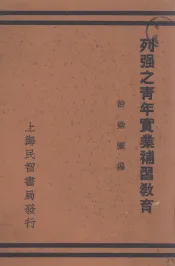 列强之青年實業補習敎育
上海民智書局發行